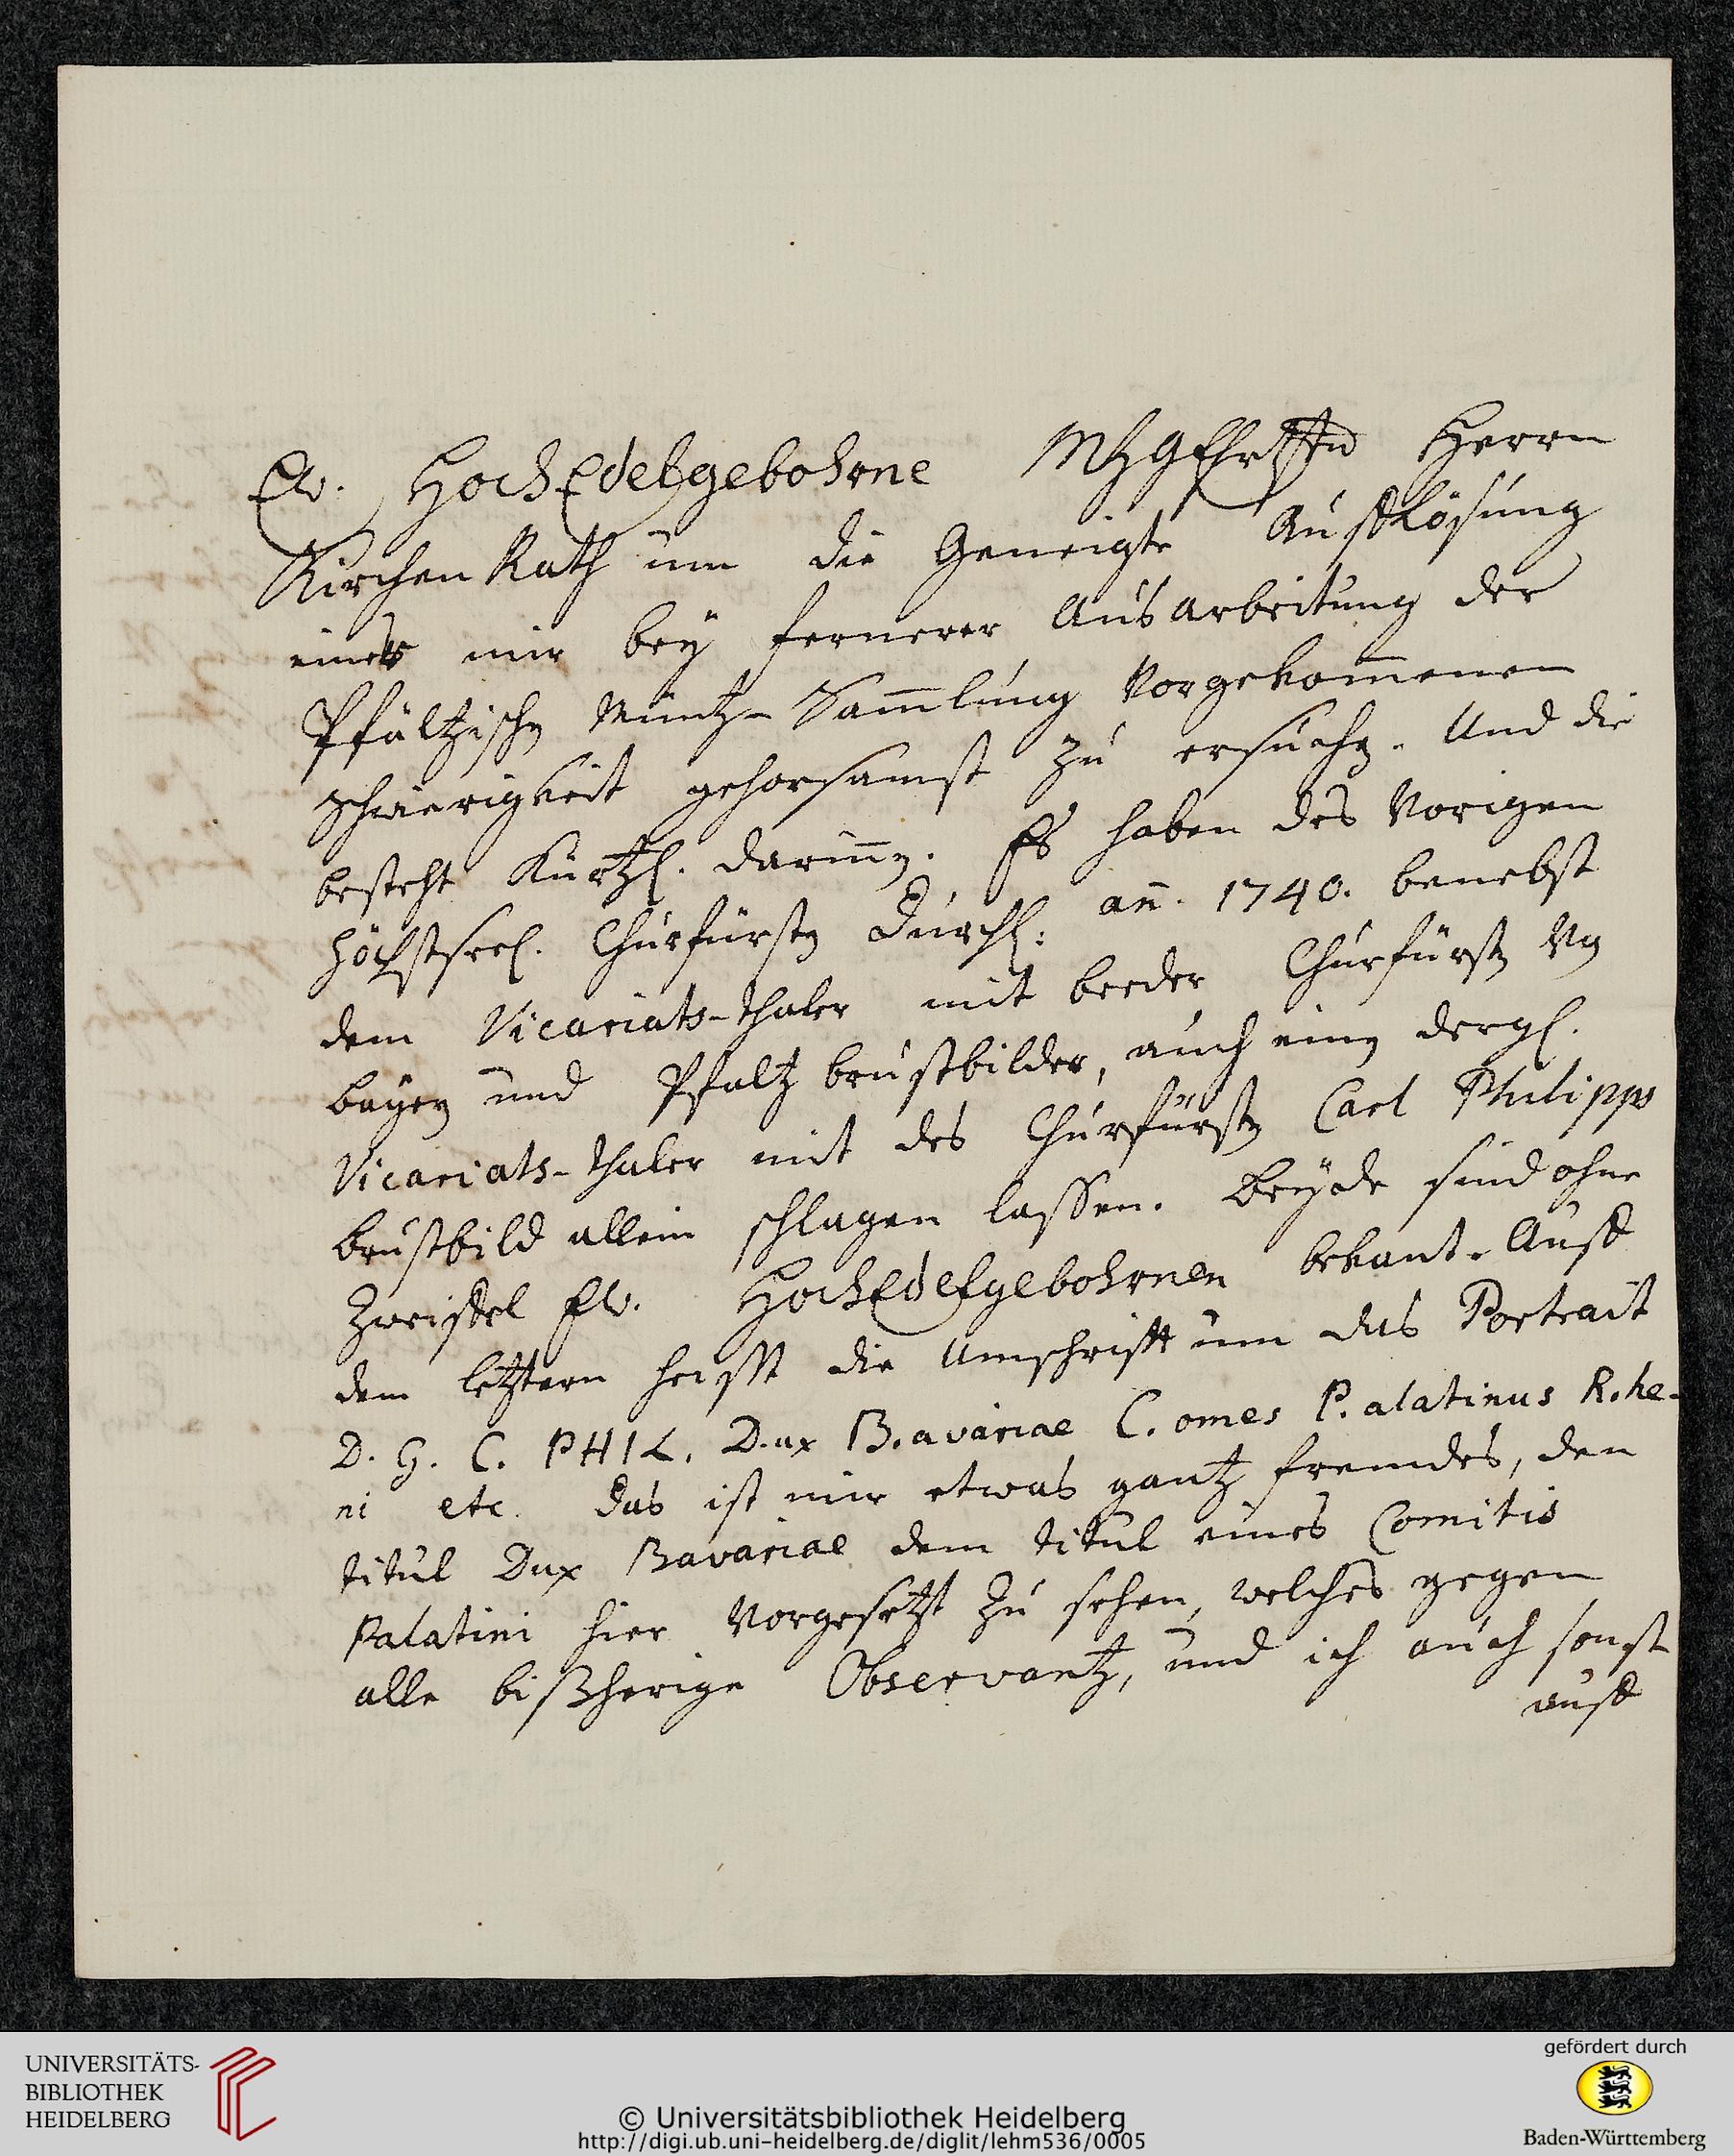 Ew. HochEdelgebohrne MhgEhrtsten Herrn
Kirchen Rath um die Geneigte Auflösung
einer mir bey fernerer Ausarbeitung der
Pfältzischen Müntz-Sam̄lung vorgekom̄enen
Schwierigkeit gehorsamst zu ersuchen. Und die
besteht Kürtzl. darin̄en. Es haben des Vorigen
höchstseel. Churfürsten Durchl: an̄. 1740. benebst
dem Vicariats-thaler mit beeder Churfürsten von
bayern und Pfaltz brustbilder, auch einen dergl.
Vicariats-thaler mit des Churfürsten Carl Philipps
brustbild allein schlagen lassen. beyde sind ohne
Zweifel Ew. HochEdelgebohrnen bekant. Auf
dem letztern heisst die Umschrifft um das Portrait
D. G. C. PHIL. D.ux B.avariae C.omes P.alatinus R.he-
ni etc. das ist mir etwas gantz fremdes, den
titul Dux Bavariae dem titul eines Comitis
Palatini hier vorgesetzt zu sehen, welches gegen
alle bißherige Observantz, und ich auch sonst
auf
UNIVERSITÄTS-
BIBLIOTHEK
HEIDELBERG
© Universitätsbibliothek Heidelberg
http://digi.ub.uni-heidelberg.de/diglit/lehm536/0005
gefördert durch
Baden-Württemberg